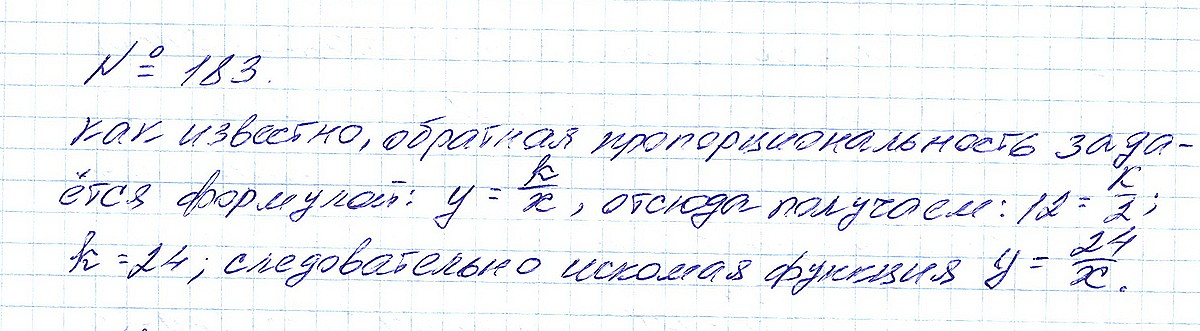 № 183.
как известно, обратная пропорциональность зада-
ётся формулой: y = k/x, отсюда получаем: 12 = k/2;
k = 24; следовательно искомая функция y = 24/x.